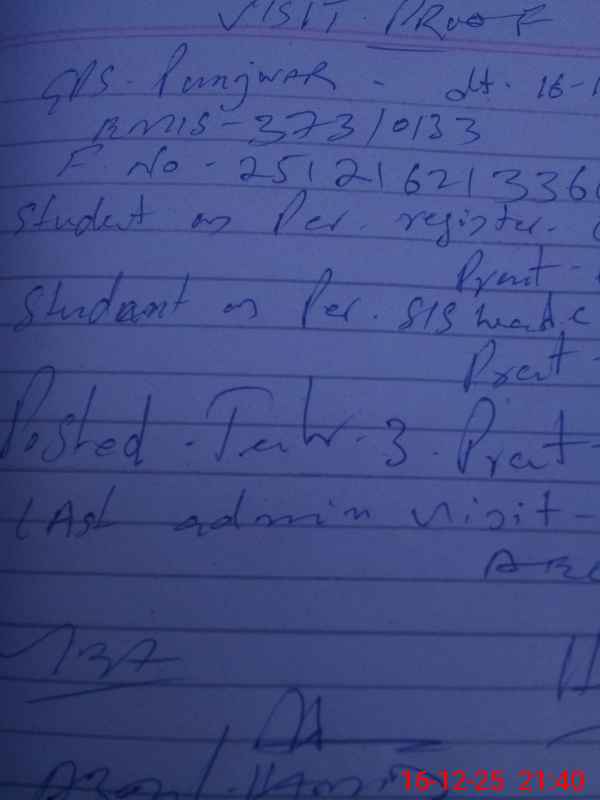 VISIT. PROOF
GPS. Punjwar - dt. 16-1
EMIS - 37310133
F. No - 251216213366
Student as Per. register.
Prent -
Student as Per. SIS
Prent -
Posted - Teachr - 3. Prent -
Last admin visit -
16-12-25 21:40